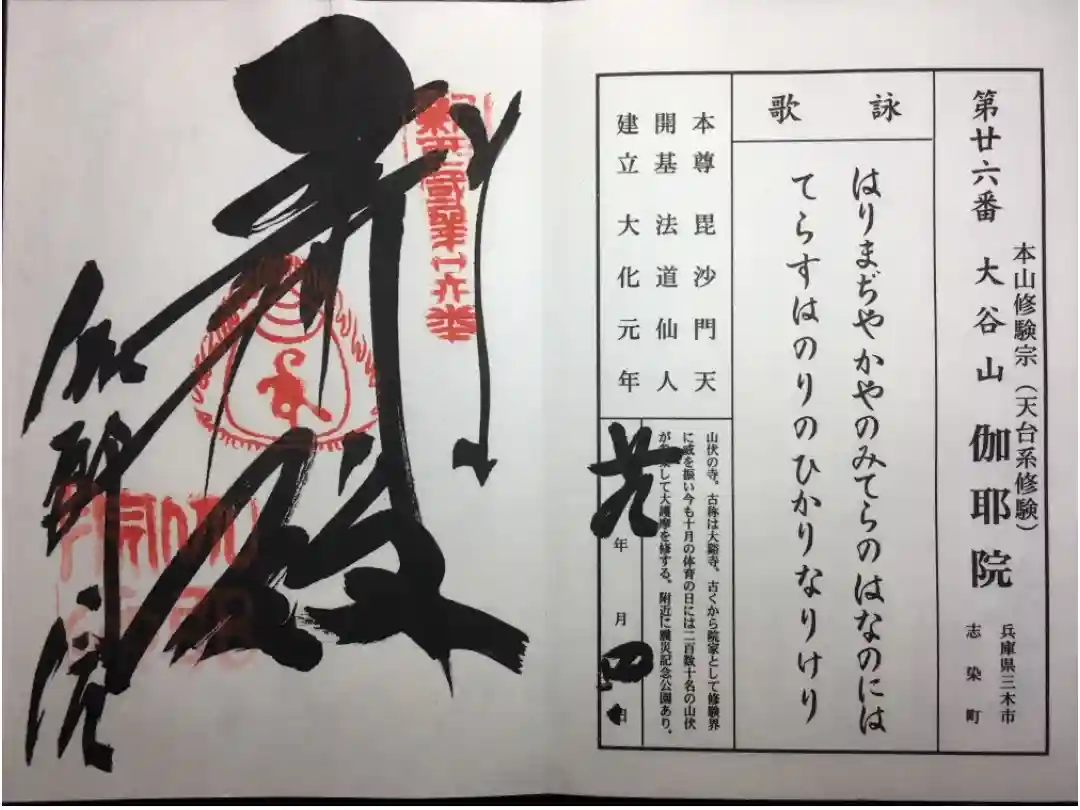 第廿六番 大谷山 伽耶院
本山修験宗（天台系修験）
兵庫県三木市
志染町
詠歌
はりまぢやかやのみてらのはなのには
てらすはのりのひかりなりけり
本尊 毘沙門天
開基 法道仙人
建立 大化元年
山伏の寺。古称は大谿寺。古くから院家として修験界
に威を振い今も十月の体育の日には二百数十名の山伏
して大護摩を修する。附近に震災記念公園あり。
年 月 四日
伽耶院